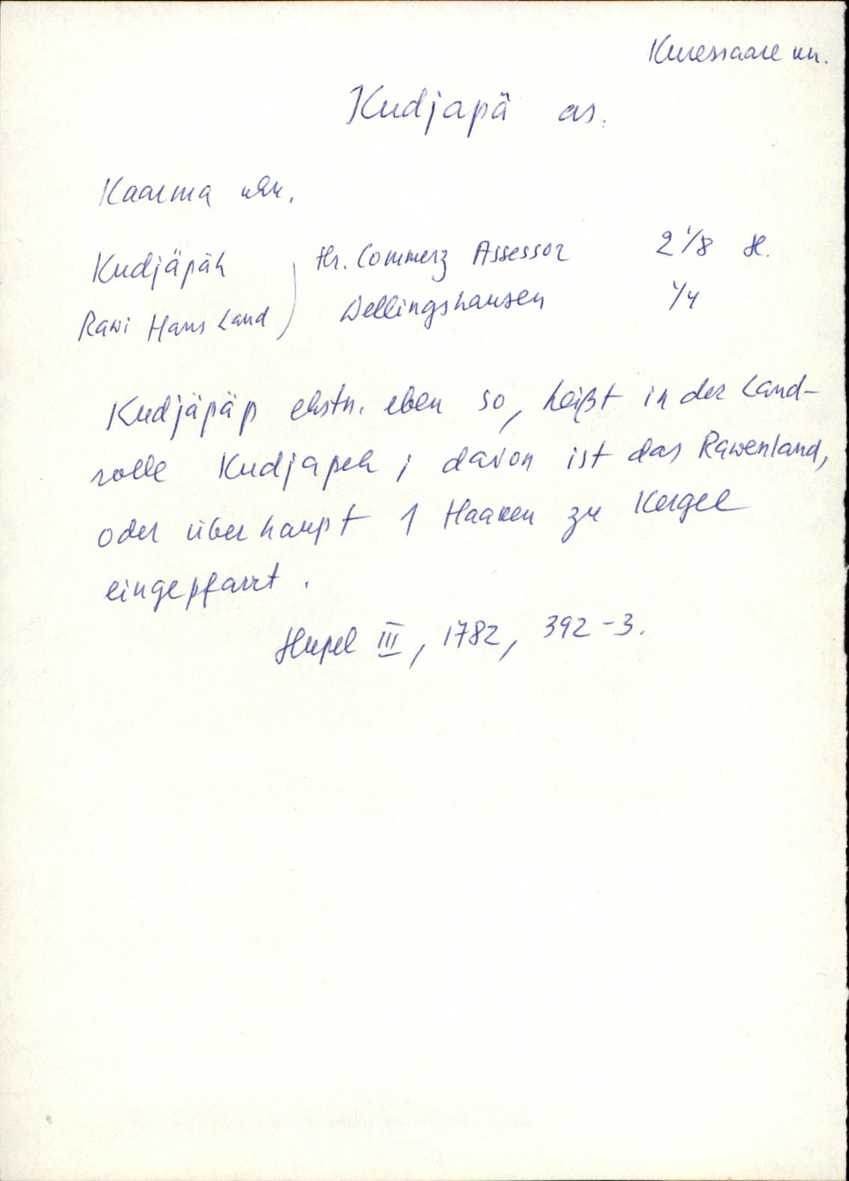 Kuressaare kk.
Kudjapä as.
Kaarma khk.
Kudjäpäh ) Hr. Commerz Assessor 2 1/8 H.
Rawi Hans Land ) Dellingshausen 1/4
Kudjäpäp ehstn. eben so, heißt in der Land-
rolle Kudjapeh; davon ist das Rawenland,
oder überhaupt 1 Haaken zu Kergel
eingepfarrt.
Hupel III, 1782, 392-3.